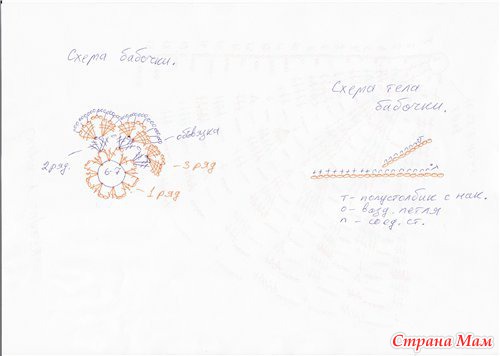 Схема бабочки.
Схема тела
бабочки.
обвязка
2 ряд.
3 ряд
6-7
1 ряд
т - полустолбик с нак.
о - возд. петля
п - соед. ст.
Страна Мам